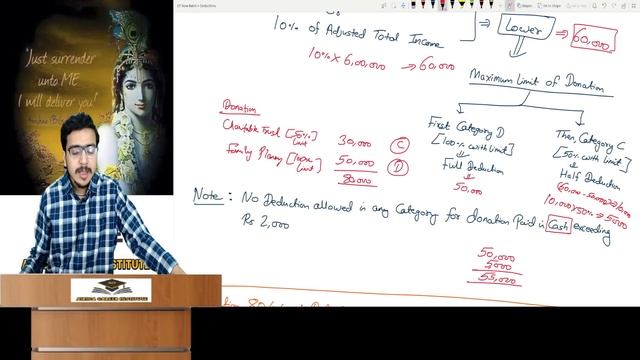 10% of Adjusted Total Income
Lower
60,000
10% × 6,00,000 → 60,000
Maximum Limit of Donation
"Just surrender
unto ME
I will deliver you"
Donation
Charitable Trust [50% limit]
30,000
C
Family Planning [100% limit]
50,000
D
80,000
First Category D
[100% with limit]
Full Deduction
50,000
Then Category C
[50% with limit]
Half Deduction
60,000 - 50,000 = 10,000
10,000 × 50% → 5000
Note : No Deduction allowed in any Category for donation Paid in Cash exceeding
Rs 2,000
50,000
5000
55,000
CAREER INSTITUTE